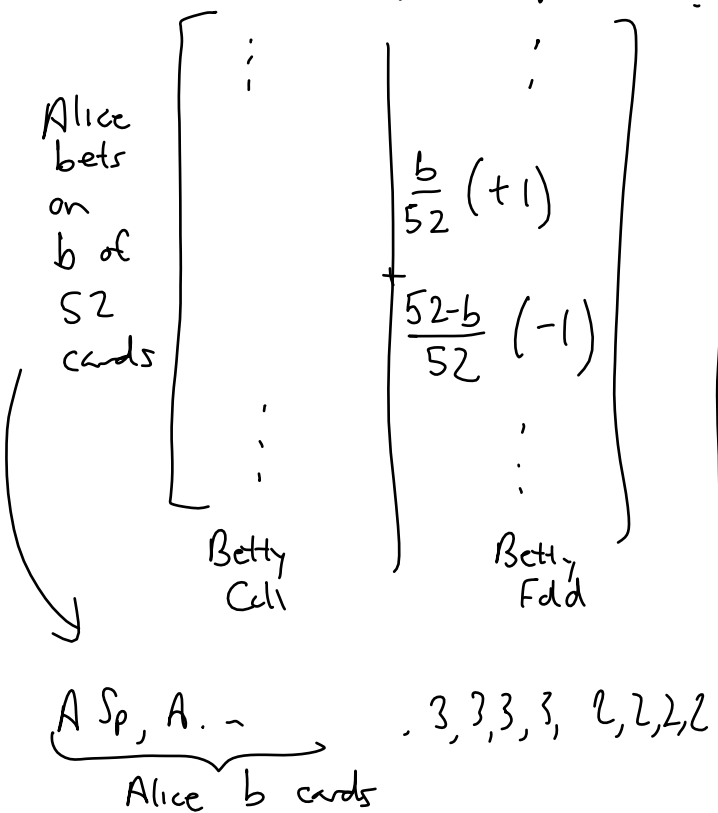 Alice
bets
on
b of
52
cards
b/52 (+1)
+
52-b/52 (-1)
Betty
Call
Betty
Fold
A Sp, A . ~
. 3, 3, 3, 3, 2, 2, 2, 2
Alice b cards